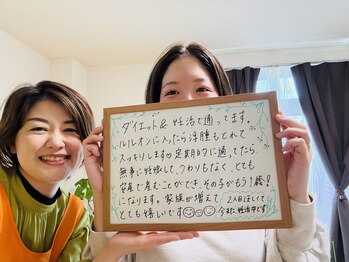 ダイエット& 妊活で通ってます。
ルルオンに入ったら浮腫もとれて
スッキリします♡ 定期的に通ってたら
無事に妊娠して、つわりもなく、とても
安産で産むことができ、その子がもう1歳!
になります。家族が増えて 2人目ほしくて
とても嬉しいです 今また妊活中です